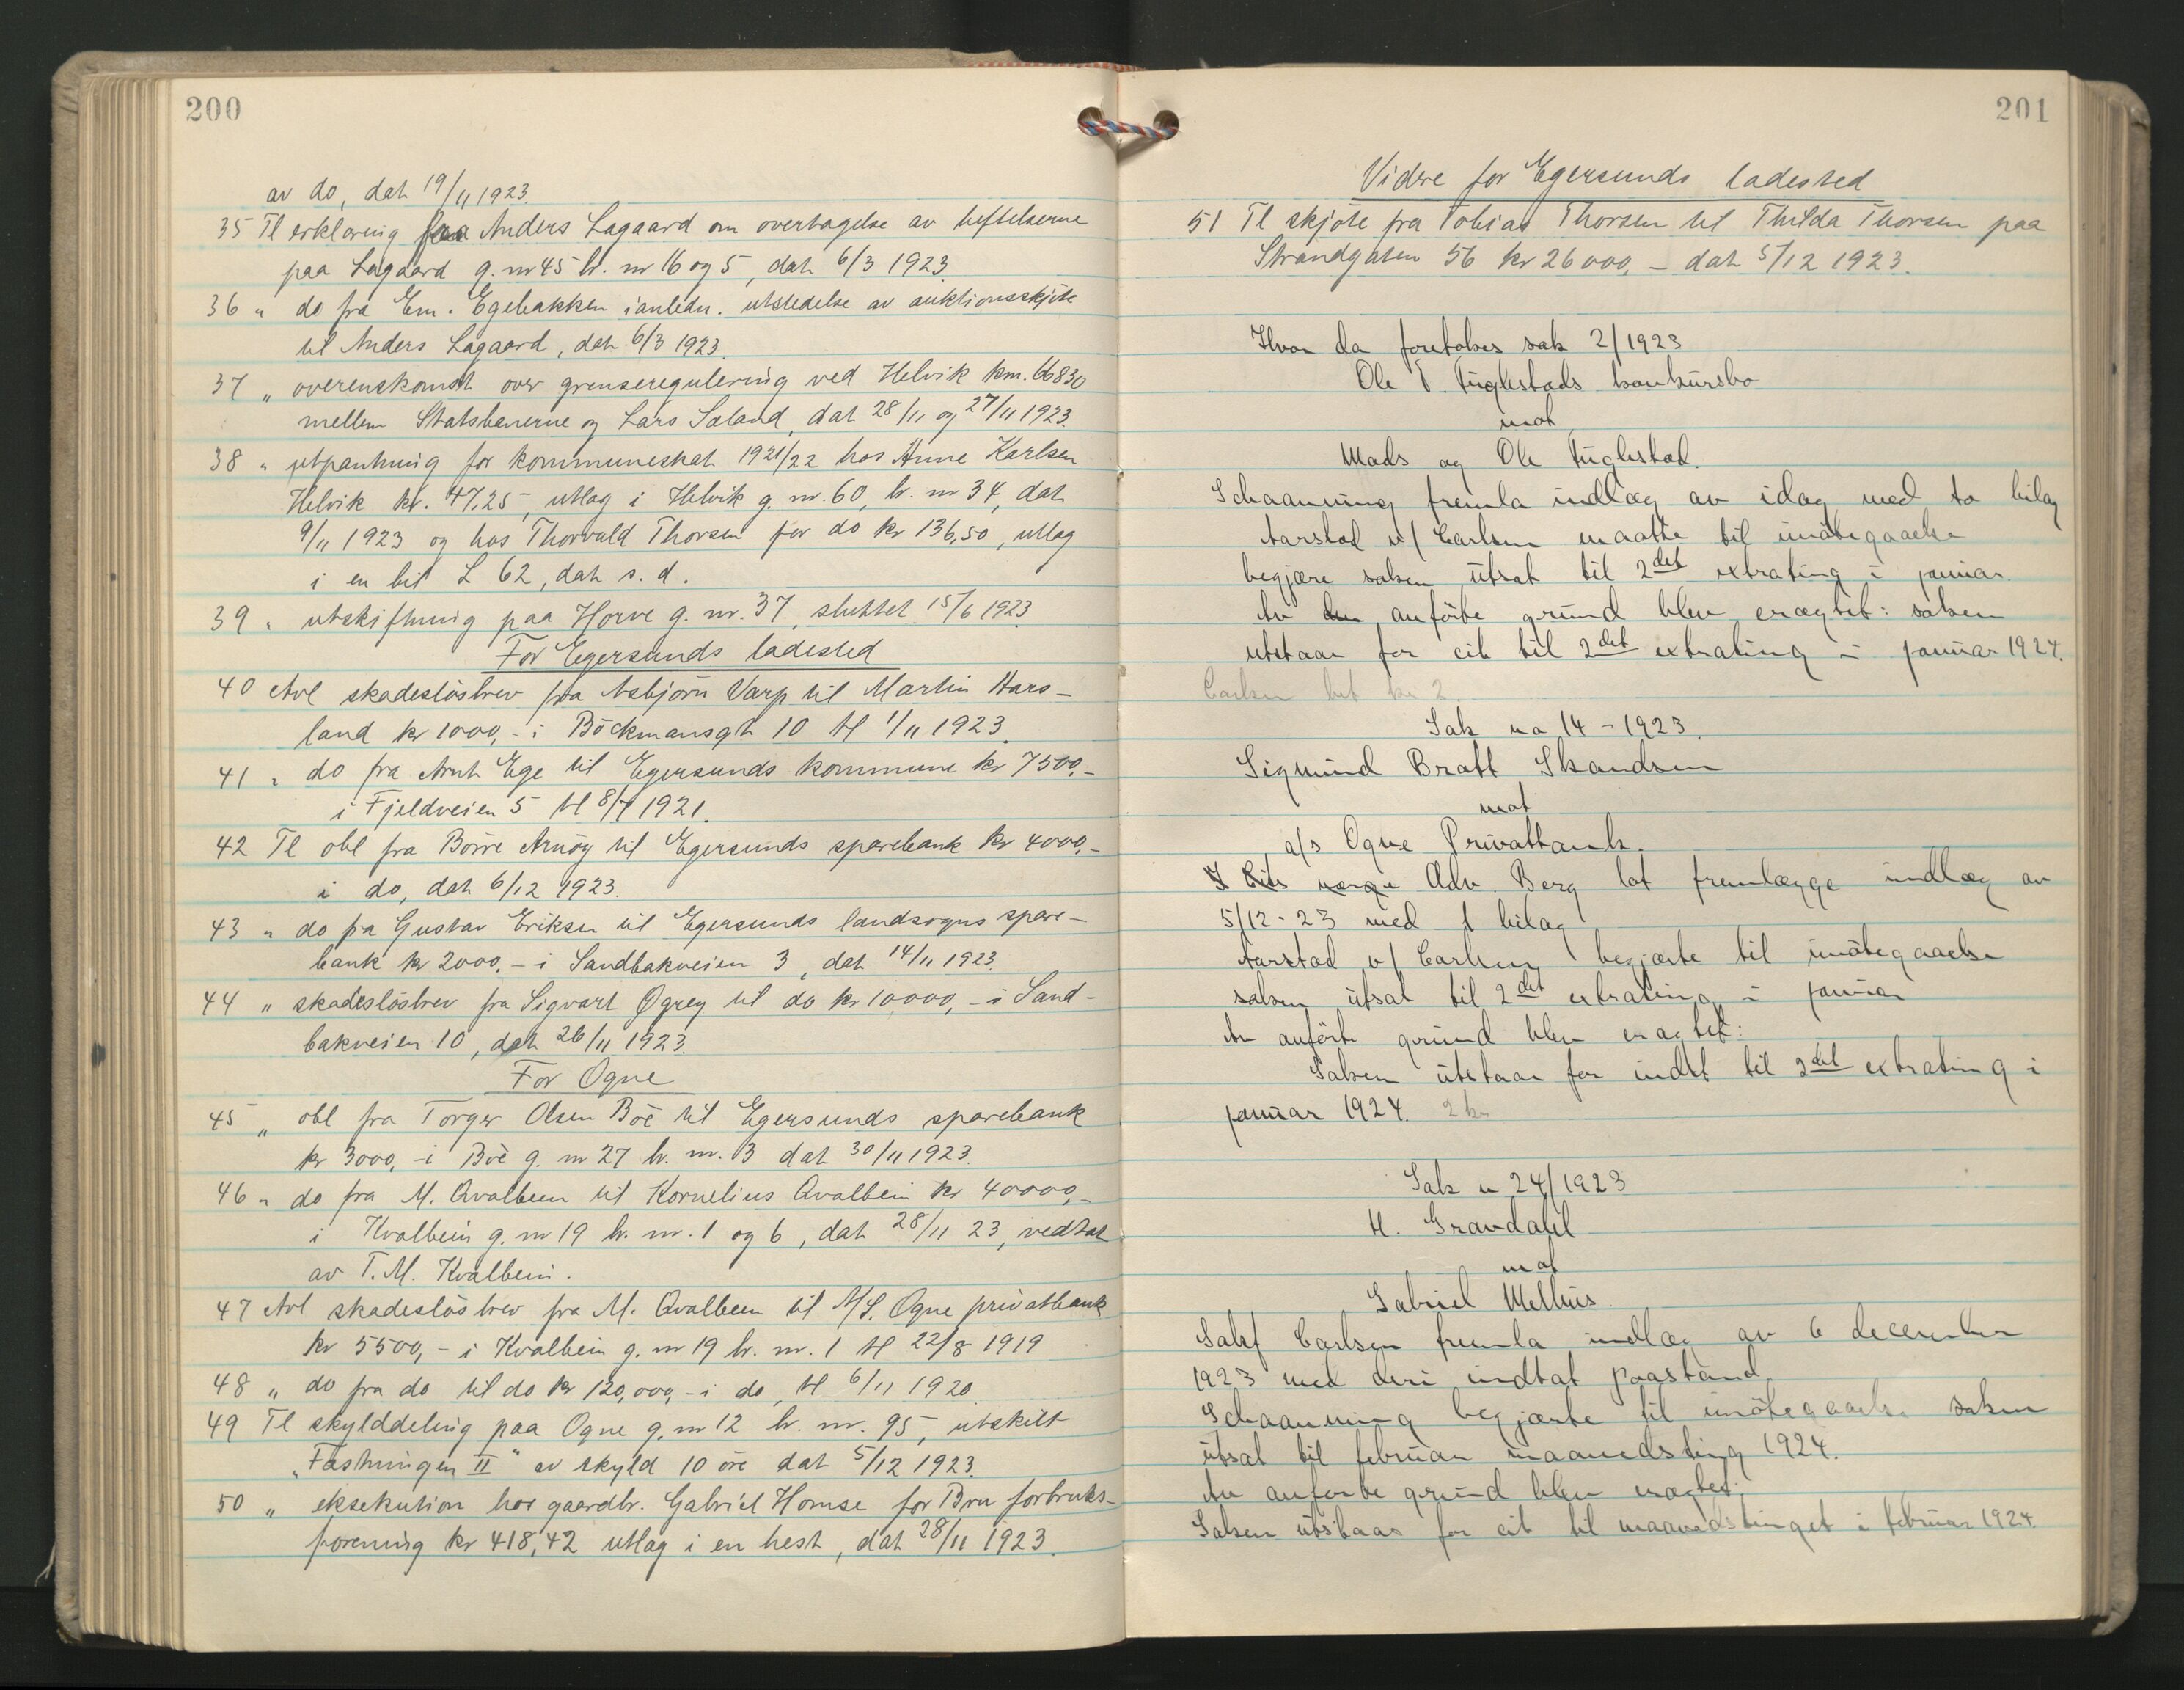 200
av do, dat 19/11 1923.
35 Tl erklæring fra Anders Lagaard om overtagelse av heftelserne
paa Lagaard g. nr 45 br. nr 16 og 5, dat 6/3 1923.
36 " do fra Em. Egebakken i anledn. utstedelse av auktionsskjöte
til Anders Lagaard, dat 6/3 1923.
37 " overenskomst over grenseregulering ved Helvik km. 66830
mellem Statsbanerne og Lars Sæland, dat 28/11 og 27/11 1923.
38 " utpantning for kommuneskat 1921/22 hos Anne Karlsen
Helvik kr. 47,25, utlag i Helvik g. nr. 60, br. nr 34, dat
9/11 1923 og hos Thorvald Thorsen for do kr 136,50, utlag
i en bit L 62, dat s. d.
39 " utskiftning paa Horve g. nr. 37, sluttet 15/6 1923
For Egersunds ladested
40 Avl skadeslösbrev fra Asbjörn Varp til Martin Hars-
land kr 1000,- i Böckmansgt 10 tl 1/11 1923.
41 " do fra Arnt Ege til Egersunds kommune kr 7500,-
i Fjeldveien 5 tl 8/4 1921.
42 Tl obl fra Börre Arnöy til Egersunds sparebank kr 4000,-
i do, dat 6/12 1923.
43 " do fra Gustav Eriksen til Egersunds landsogns spare-
bank kr 2000,- i Sandbakveien 3, dat 14/11 1923.
44 " skadeslösbrev fra Sigvart Ögrey til do kr 10000,- i Sand-
bakveien 10, dat 26/11 1923.
For Ogne
45 " obl fra Torger Olsen Böe til Egersunds sparebank
kr 3000,- i Böe g. nr 27 br. nr. 3 dat 30/11 1923.
46 " do fra M. Qvalbein til Kornelius Qvalbein kr 40000,-
i Kvalbein g. nr 19 br. nr. 1 og 6, dat 28/11 23, vedtat
av T. M. Kvalbein.
47 Avl skadeslösbrev fra M. Qvalbein til A/S. Ogne privatbank
kr 5500,- i Kvalbein g. nr 19 br. nr. 1 tl 22/8 1919
48 " do fra do til do kr 120,000,- i do, tl 6/11 1920
49 Tl skylddeling paa Ogne g. nr 12 br. nr. 95, utskilt
"Fæstningen II" av skyld 10 öre dat 5/12 1923.
50 " eksekution hos gaardbr. Gabriel Homse for Bru forbruks-
forening kr 418,42 utlag i en hest, dat 28/11 1923.
201
Videre for Egersunds ladested
51 Tl skjöte fra Tobias Thorsen til Thilda Thorsen paa
Strandgaten 56 kr 26000,- dat 5/12 1923.
Hvor da foretokes sak 2/1923
Ole T. Fuglestads konkursbo
mot
Mads og Ole Fuglestad.
Schaanning fremla indlæg av idag med to bilag
Aarstad v/ Carlsen maatte til imötegaaelse
begjære saken utsat til 2det extrating i januar.
Av anförte grund blev eragtet: saken
utstaar for cit til 2det extrating i januar 1924.
Carlsen bet kr 2
Sak no 14 - 1923.
Sigmund Bratt Skandsen
mot
a/s Ogne Privatbank.
Adv. Berg lot fremlægge indlæg av
5/12-23 med 1 bilag
Aarstad v/ Carlsen begjærte til imötegaaelse
saken utsat til 2det extrating i januar
Av anförte grund blev eragtet:
Saken utstaar for indst til 2det extrating i
januar 1924. 2 kr
Sak n 24/1923
H. Gravdahl
mot
Gabriel Melhus
Sakf Carlsen fremla indlæg av 6 december
1923 med deri indtat paastand
Schaanning begjærte til imötegaaelse saken
utsat til februar maanedsting 1924.
Av anförte grund blev eragtet:
Saken utstaar for cit til maanedstinget i februar 1924.